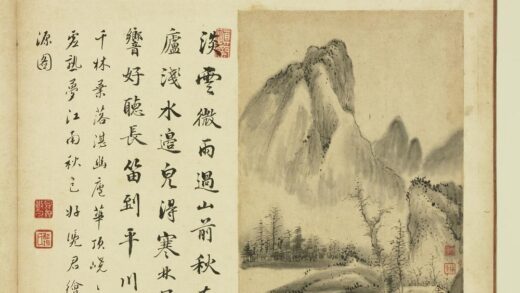 淡雲微雨過山前秋在
廬淺水邊得寒林
響好聽長笛到平川
千林葉落湛幽華頂
夢江南秋色好憑君繪
源圖